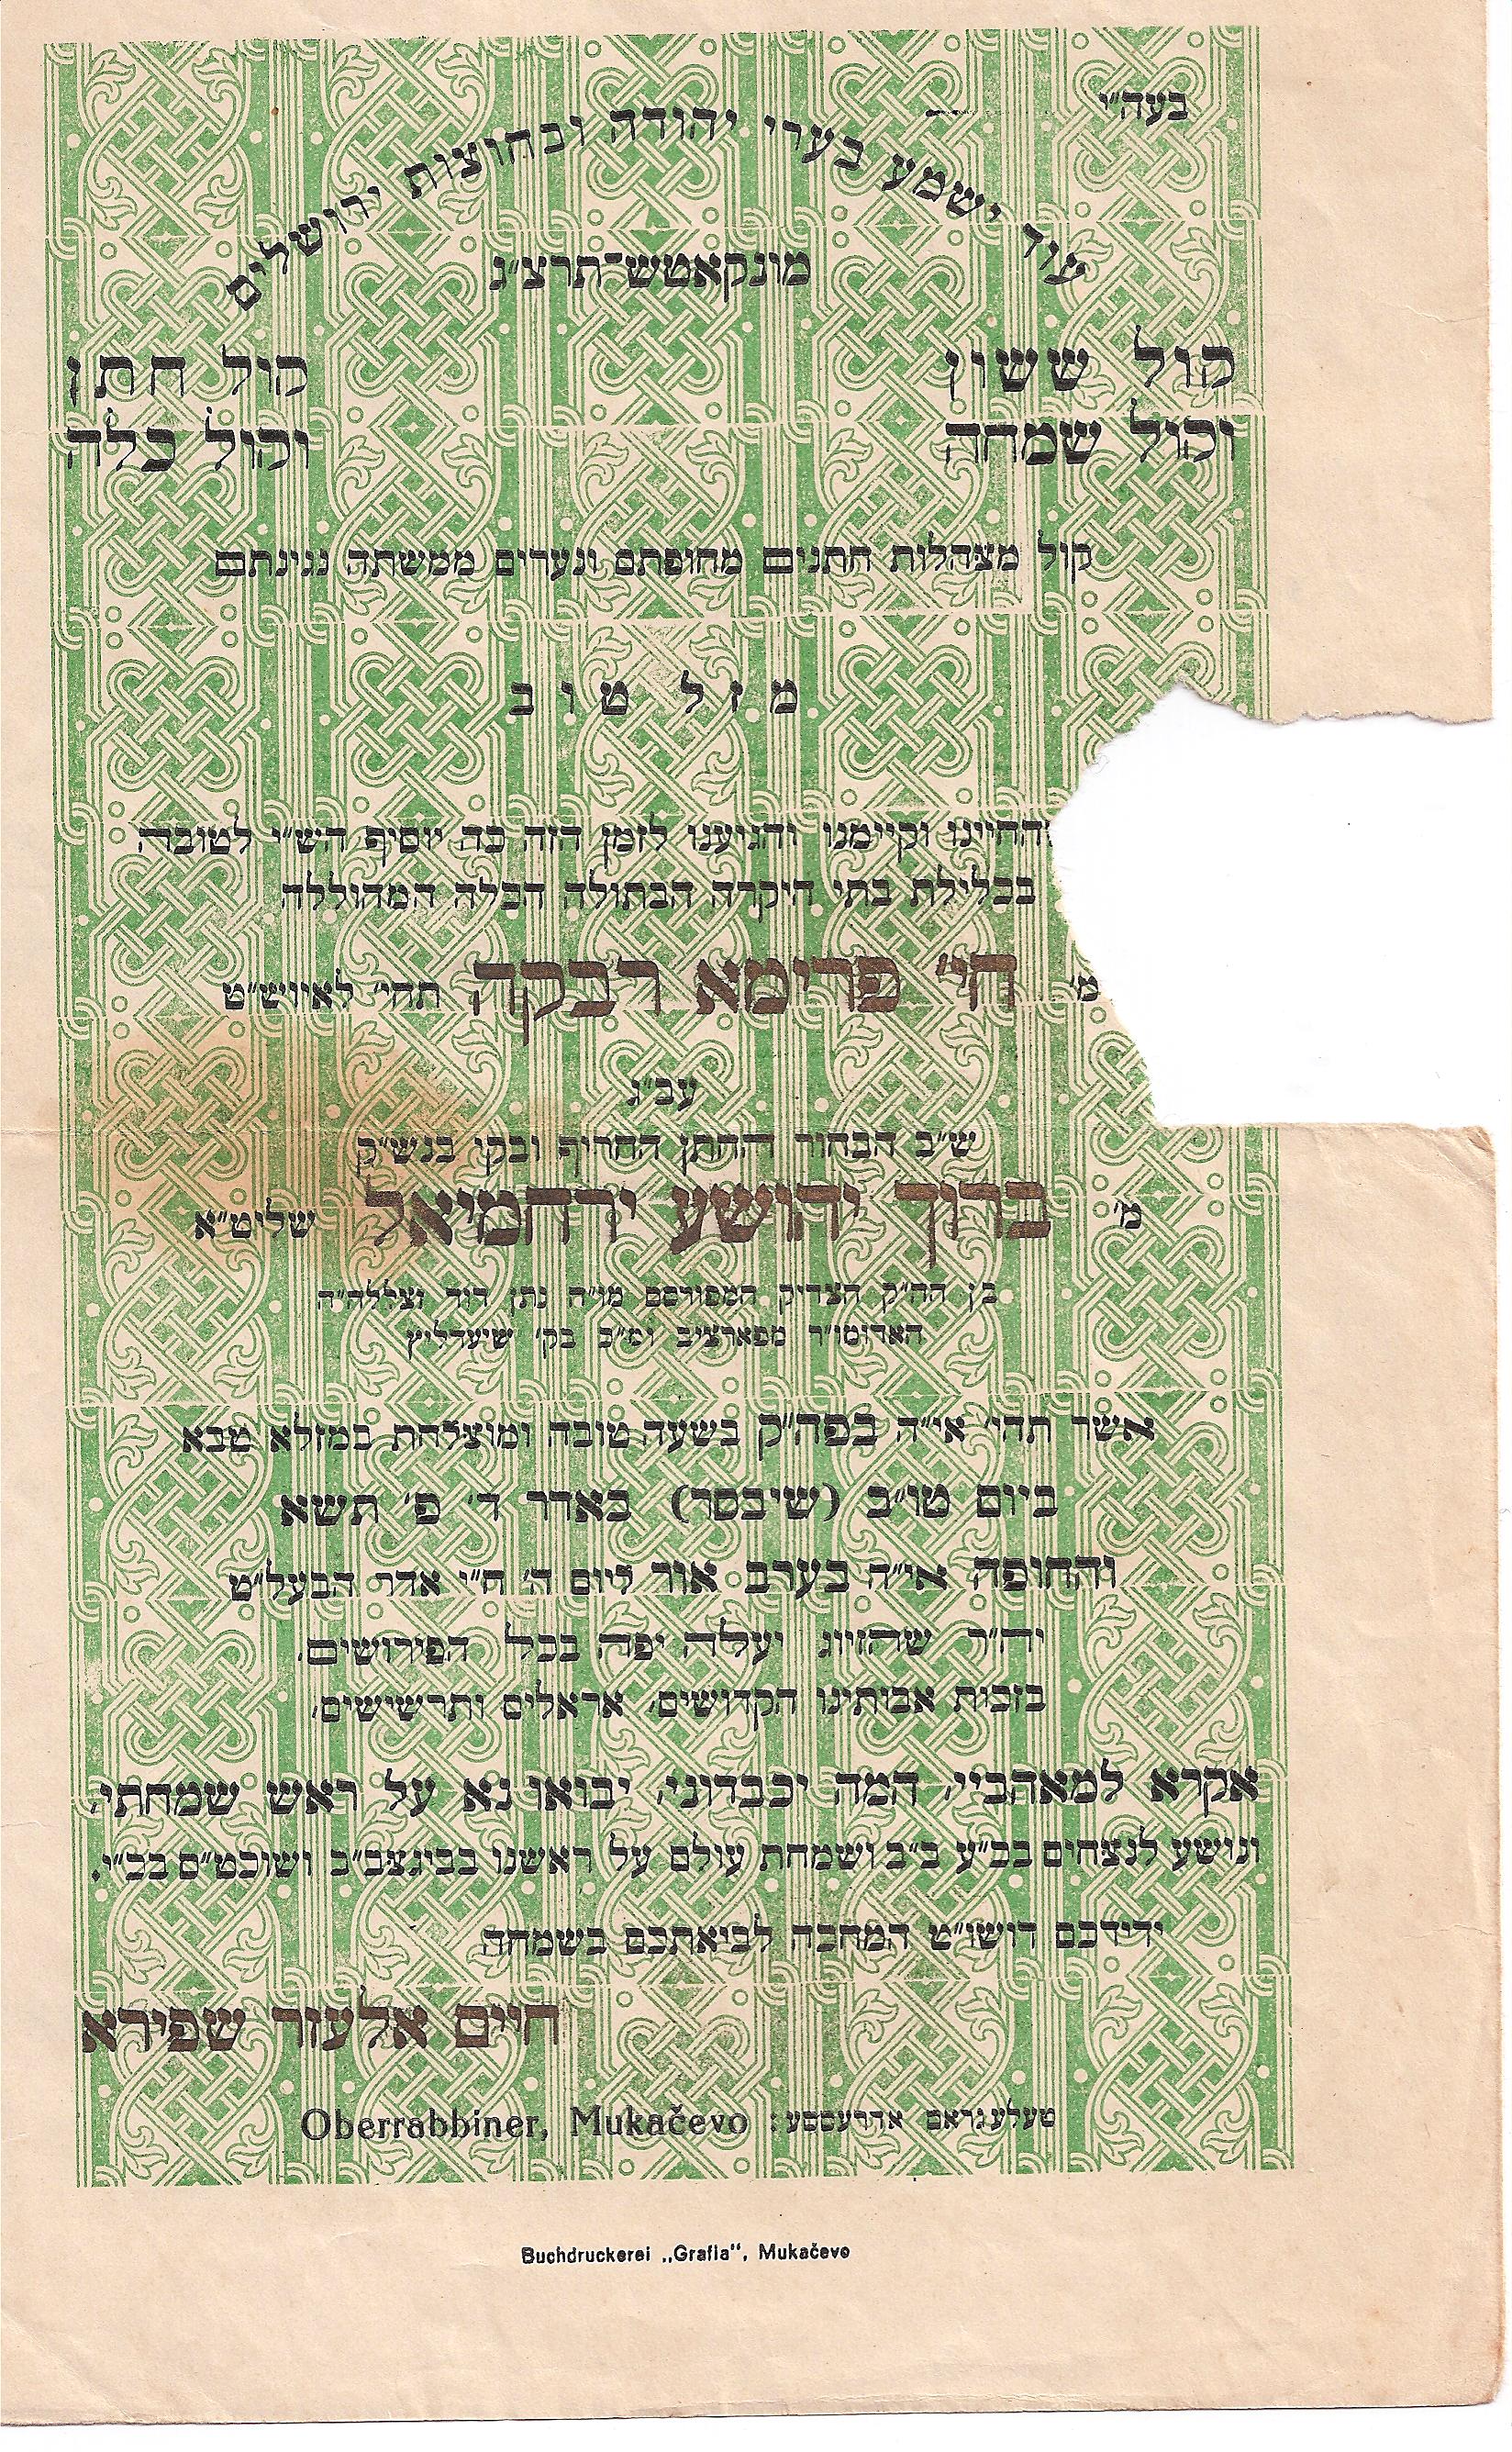 בעה״י
עוד ישמע בערי יהודה ובחוצות ירושלים
מונקאטש־תרצ״ג
קול ששון קול חתן
וקול שמחה וקול כלה
קול מצהלות חתנים מחופתם ונערים ממשתה נגינתם
מזל טוב
החיינו וקיימנו והגיענו לזמן הזה כה יוסיף הש״י לטובה
בכלילת בתי היקרה הבתולה הכלה המהוללה
מ׳ חי׳ פרימא רבקה תהי׳ לאויש״ט
עב״ג
ש״ב הבחור החתן החריף ובקי בנש״ק
מ׳ ברוך יהושע ירחמיאל שליט״א
בן הה״ק הצדיק המפורסם מו״ה נתן דוד זצללה״ה
האדומו״ר מפארציב ומ״כ בק׳ שיעדליץ
אשר תהי׳ אי״ה בפה״ק בשעה טובה ומוצלחת במזלא טבא
ביום טו״ב (שיבסר) באדר ד׳ פ׳ תשא
והחופה אי״ה בערב אור ליום ה׳ ח״י אדר הבעל״ט
יה״ר שהזיווג יעלה יפה בכל הפירושים.
בזכות אבותינו הקדושים, אראלים ותרשישים,
אקרא למאהביי, המה יכבדוני, יבואו נא על ראש שמחתי,
ונושע לנצחים בב״ע ב״ב ושמחת עולם על ראשנו בביגצב״ב ושוכט״ם בב״י.
ידידכם דושו״ט המחכה לביאתכם בשמחה
חיים אלעזר שפירא
טעלעגראם אדרעססע: Oberrabbiner, Mukačevo
Buchdruckerei „Grafia", Mukačevo